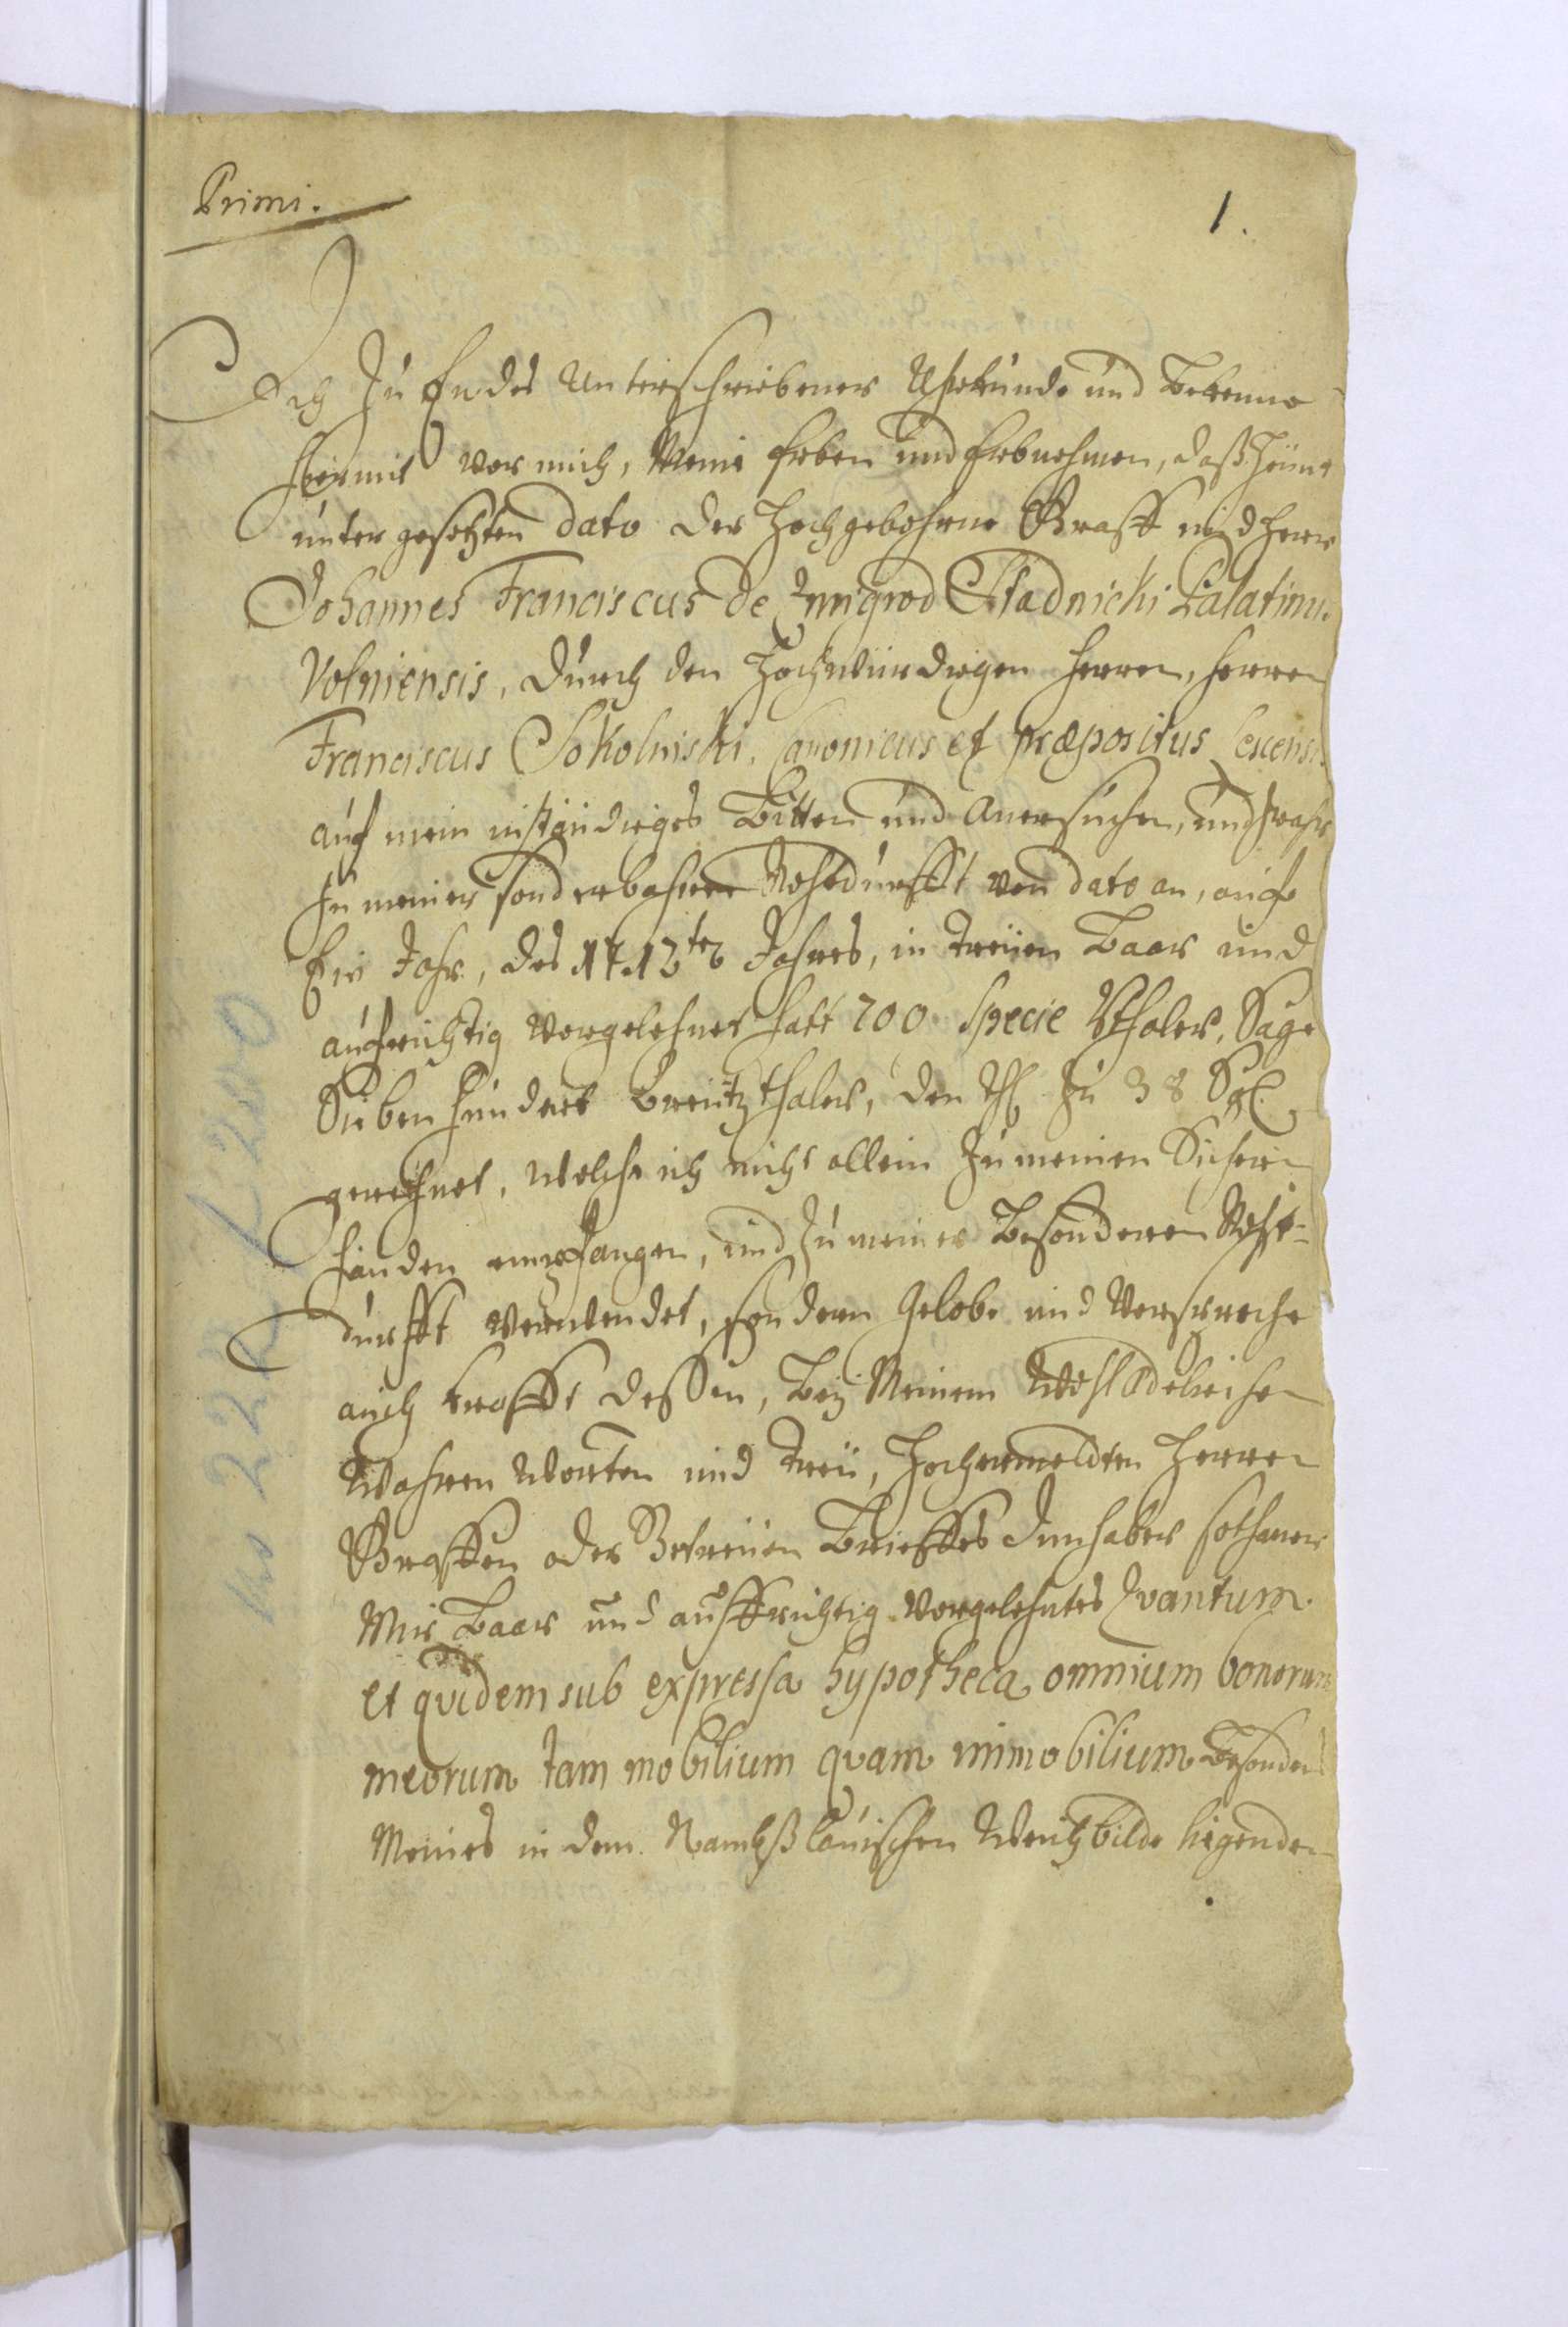 Primi.
1.
Ich Zu Endes Unterschriebener Uhrkunde und Bekenne
hiermit vor mich, Meine Erben und Erbnehmen, daß Heünt
unter gesetzten dato der Hochgebohrne Graff und Herr
Johannes Franciscus de Zmigrod Stadnicki Palatinu.
Volniensis, durch den Hochwürdigen Herren, Herren
Franciscus Sokolniski, Canonicus et præpositus
auf mein inständiges Bitten und Anersuchen, und zwahr
Zu meiner sonderbahren Nohtdurfft von dato an, auf
Ein Jahr, des 1713ten Jahres, in treüen Baar und
aufrichtig vorgelehnet hatt 700 Specie Rthaler, Sage
Sieben Hundert Creützthaler, den Thl Zu 38 Sgl.
gerechnet, Welche ich nicht allein Zu meinen Sichern
Händen empfangen, und Zu meiner Besonderen Noht-
durfft verwendet, sondern Gelobe und Verspreche
auch krafft dessen, Bey Meinem WohlAdelichen
Wahren Worten und treü, Hochermeldten Herren
Graffen oder Getreüen Brieffes Innhaber sothanes
Mir Baar und auffrichtig vorgelehntes Qvantum
et qvidem sub expressa hypotheca omnium bonorum
meorum tam mobilium qvam immobilium Besonders
Meines in dem Namßlauischen Weichbilde liegenden